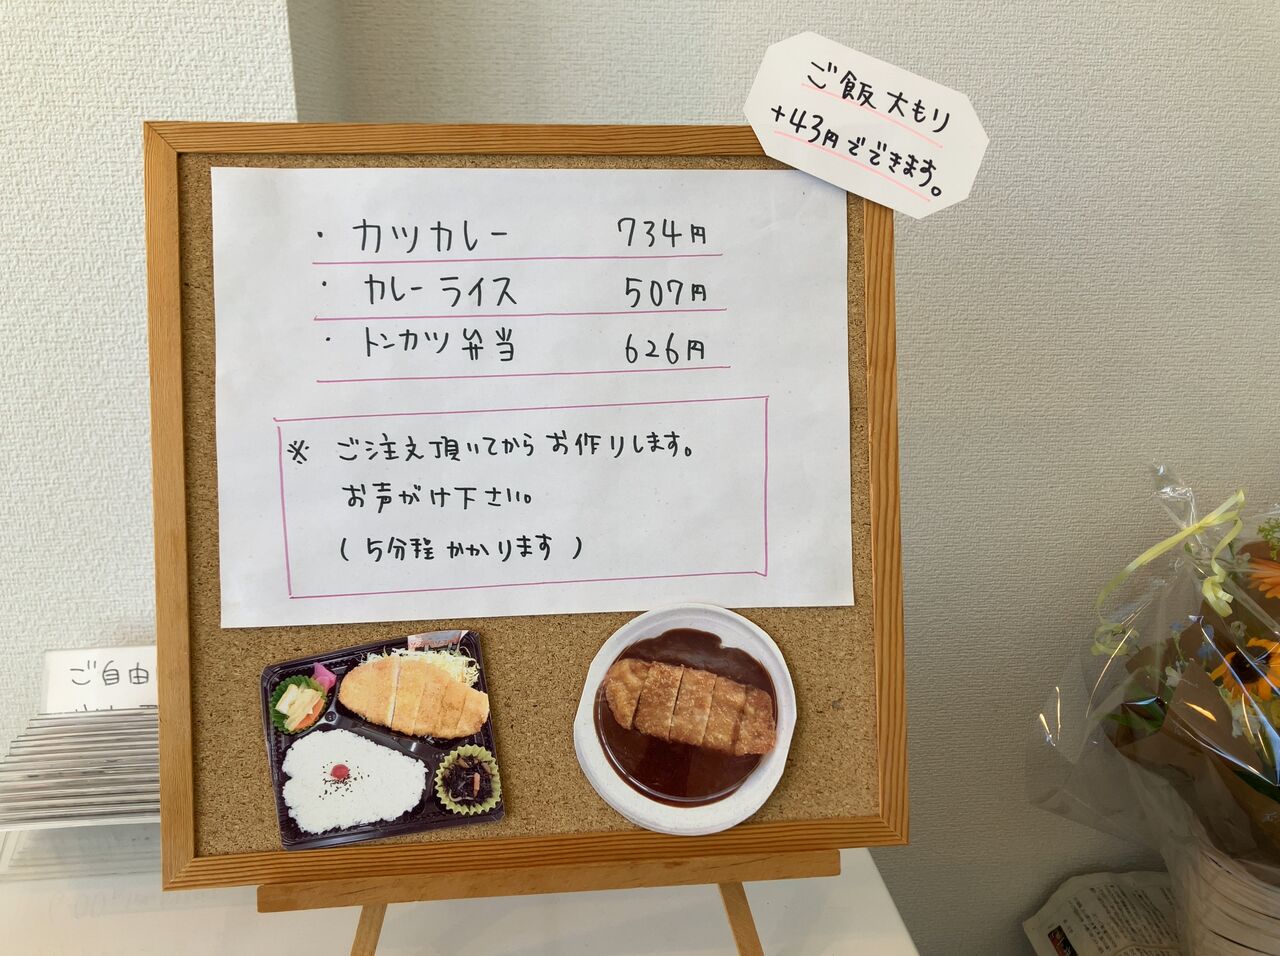 ご飯大もり
+43円でできます。
・カツカレー 734円
・カレーライス 507円
・トンカツ弁当 626円
※ ご注文頂いてからお作りします。
お声がけ下さい。
(5分程かかります)
ご自由